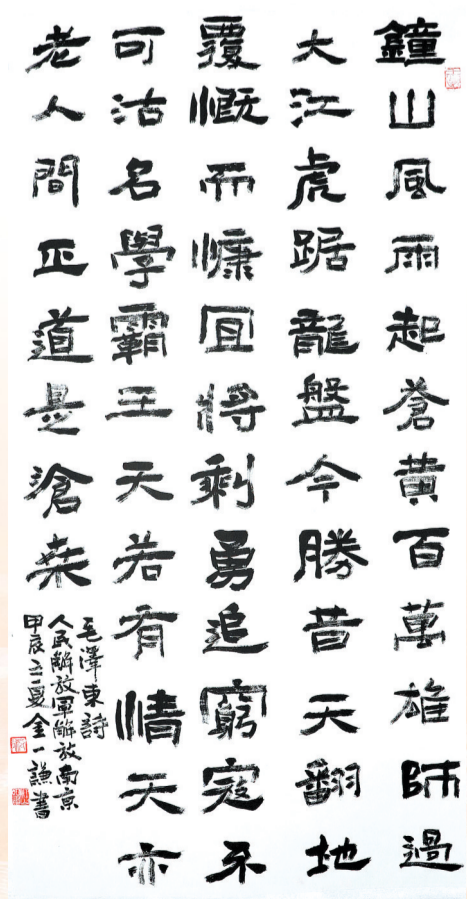 鐘山風雨起蒼黄百萬雄師過
大江虎踞龍盤今勝昔天翻地
覆慨而慷宜將剩勇追窮寇不
可沽名學霸王天若有情天亦
老人間正道是滄桑
毛澤東詩
人民解放軍解放南京
甲辰夏金一謙書